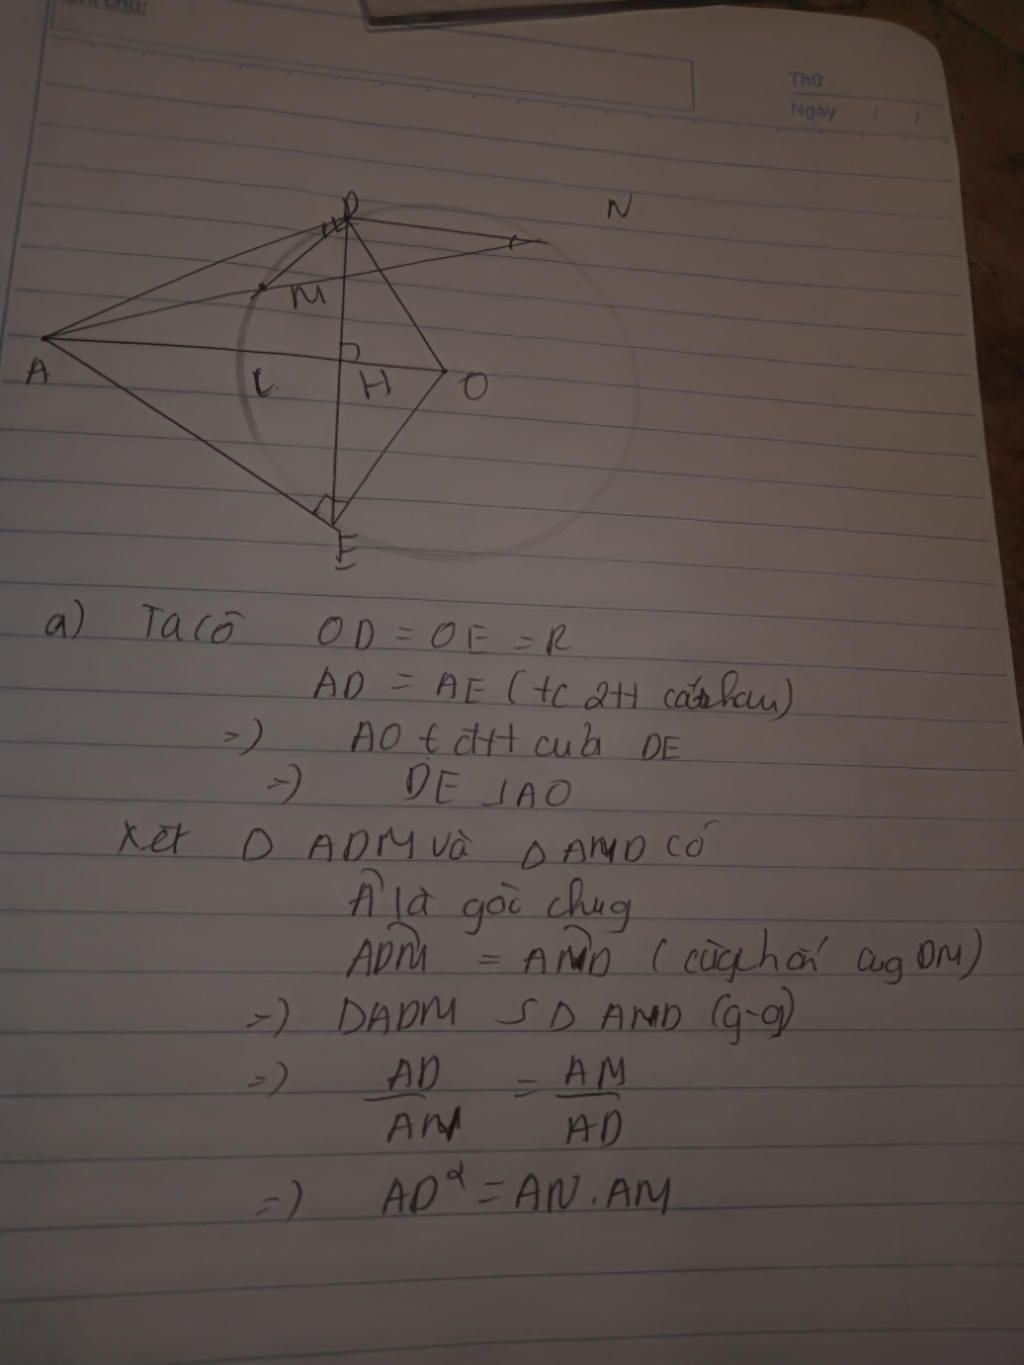 Thứ
Ngày / /
D
N
M
A
L
H
O
E
a) Ta có OD = OE = R
AD = AE (tc 2tt cắt nhau)
=) AO t đtt của DE
=) DE ⊥ AO
Xét Δ ADM và Δ AND có
Â là góc chug
ADM = AND ( cùg chắn cug DM)
=) DADM S D AND (g-g)
=) AD = AM
AN AD
=) AD² = AN . AM